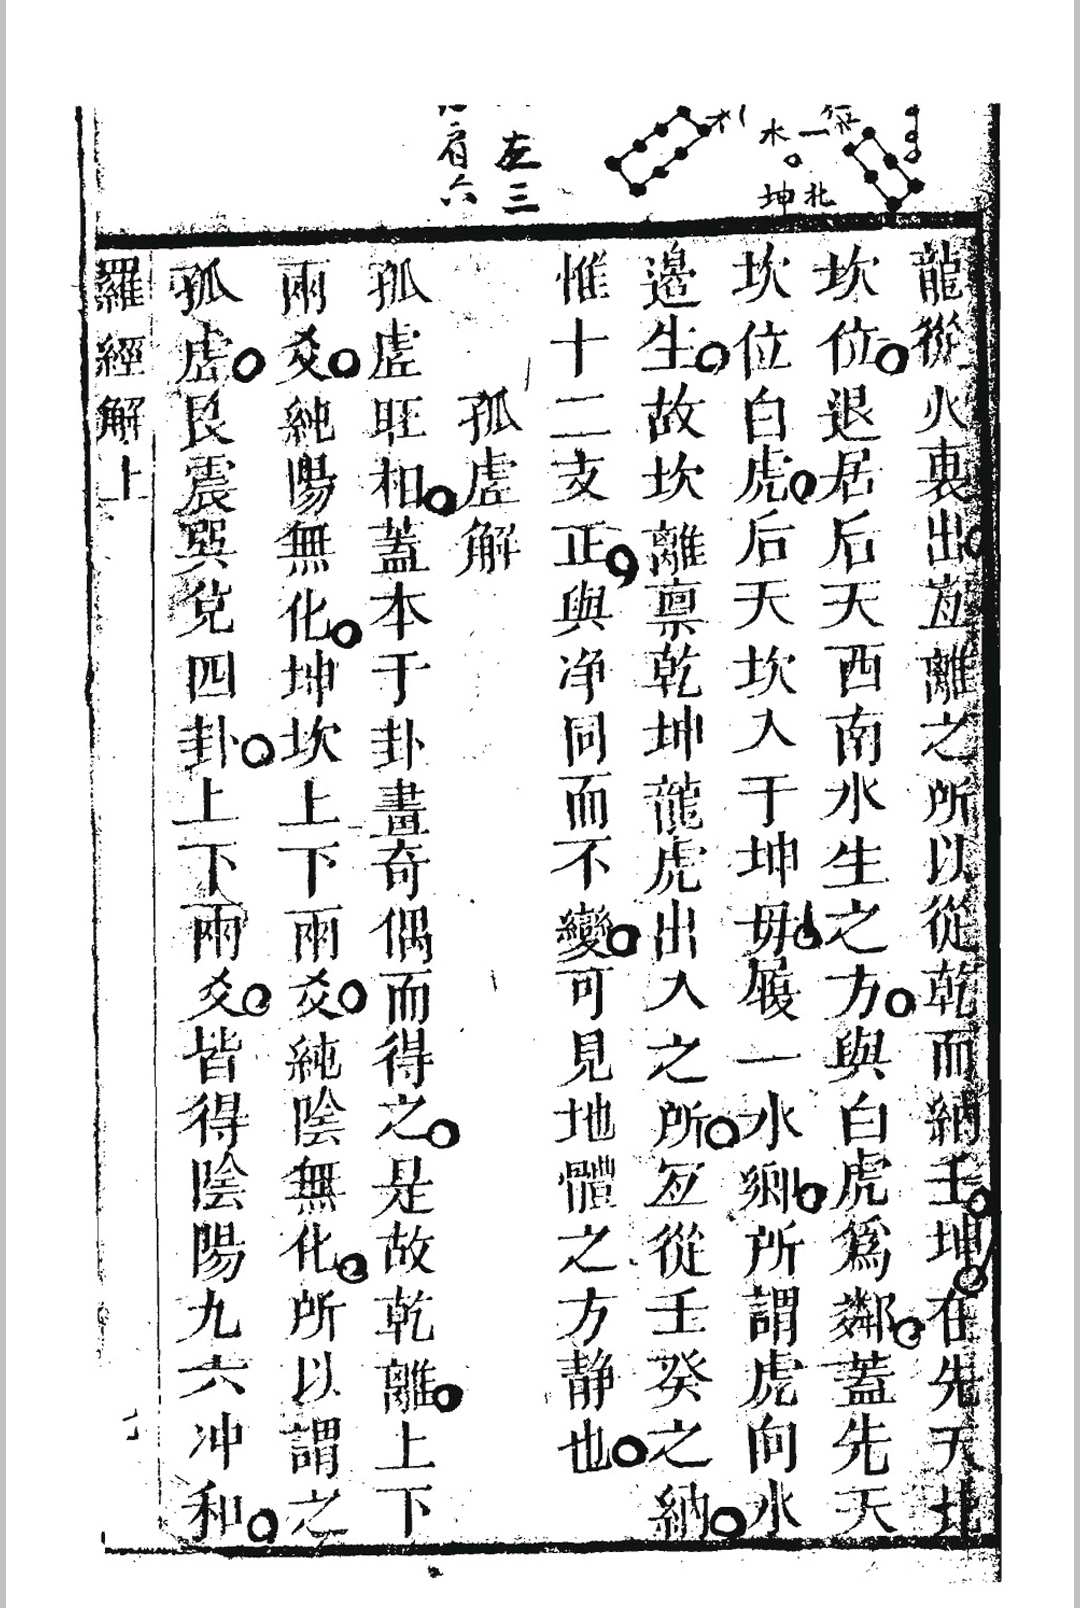 水一
坤北
左三
肩六
龍從火裏出並離之所以從乾而納壬坤在先天北
坎位退居后天西南水生之方與白虎爲鄰蓋先天
坎位白虎后天坎入于坤毋履一水鄉所謂虎向水
邊生故坎離禀乾坤龍虎出入之所互從壬癸之納
惟十二支正與净同而不變可見地體之方静也
孤虛解
孤虛旺相蓋本于卦畫奇偶而得之是故乾離上下
兩爻純陽無化坤坎上下兩爻純陰無化所以謂之
孤虛艮震巽兌四卦上下兩爻皆得陰陽九六冲和
羅經解上